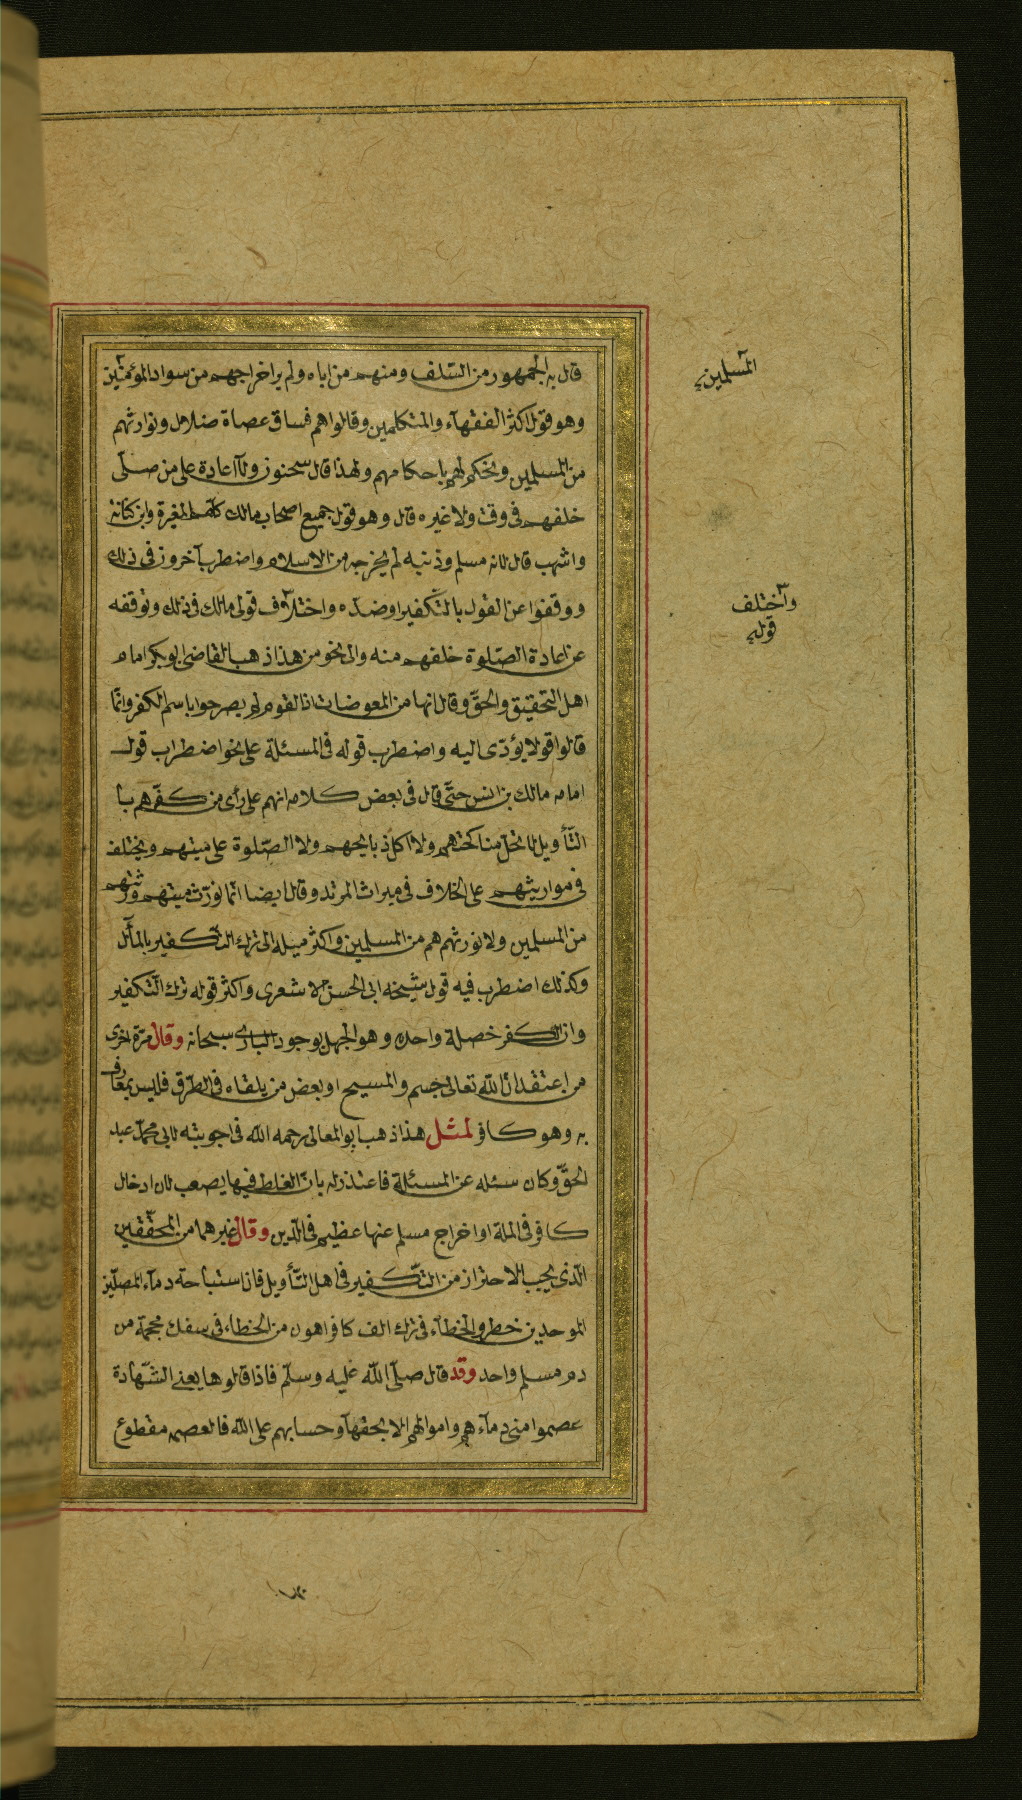 قال به الجمهور من السّلف ومنهم من اباه ولم ير اخراجهم من سواد المؤمنين
وهو قول اكثر الفقهآء والمتكلمين وقالوا هم فساق عصاة ضلال ونوارثهم
من المسلمين ونحكم لهم باحكامهم ولهذا قال سحنون ولآ اعادة على من صلّى
خلفهم فى وقت ولا غيره قال وهو قول جميع اصحاب مالك كلّهم المغيرة وابن كنانة
واشهب قال لانه مسلم وذنبه لم يخرجه من الاسلام واضطرب آخرون فى ذلك
ووقفوا عن القول بالتّكفير او ضدّه واختلآف قولى مالك فى ذلك وتوقفه
عن اعادة الصّلوة خلفهم منه والى نحو من هذا ذهب القاضى ابو بكر امام
اهل التحقيق والحقّ وقال انها من المعوضات اذ القوم لم يصرحوا باسم الكفر وانّما
قالوا قولا يؤدّى اليه واضطرب قوله فى المسئلة على نحو اضطراب قول
امامه مالك بن انس حتّى قال فى بعض كلامه انهم على رأى من كفّرهم با
التّأويل لا تحلّ مناكحتهم ولا اكل ذبايحهم ولا الصّلوة على ميتهم ويختلف
فى مواريثهم على الخلاف فى ميراث المرتد وقال ايضا انّما نورّث ميتهم ورثتهم
من المسلمين ولا نورثهم هم من المسلمين واكثر ميله الى ترك التكفير بالمآل
وكذلك اضطرب فيه قول شيخه ابى الحسن الاشعرى واكثر قوله ترك التّكفير
وان الكفر خصلة واحدة وهو الجهل بوجود البارى سبحانه وقال مرّة اخرى
من اعتقد انّ الله تعالى جسم والمسيح او بعض من يلقاه فى الطّرق فليس بعارف
به وهو كافر لمثل هذا ذهب ابو المعالى رحمه الله فى اجوبته لابى محمّد عبد
الحقّ وكان سئله عن المسئلة فاعتذر له بانّ الغلط فيها يصعب لان ادخال
كافر فى الملة او اخراج مسلم عنها عظيم فى الدّين وقال غيرهما من المحقّقين
الّذى يجب الاحتراز من التّكفير فى اهل التّأويل فان استباحة دمآء المصلّين
الموحدين خطر والخطآء فى ترك الف كافر اهون من الخطاء فى سفك محجمة من
دم مسلم واحد وقد قال صلّى الله عليه وسلّم فاذا قالوها يعنى الشّهادة
عصموا منى دمآءهم واموالهم الا بحقهآ وحسابهم على الله فالعصمه مقطوع
المسلمين
وآختلف
قوله